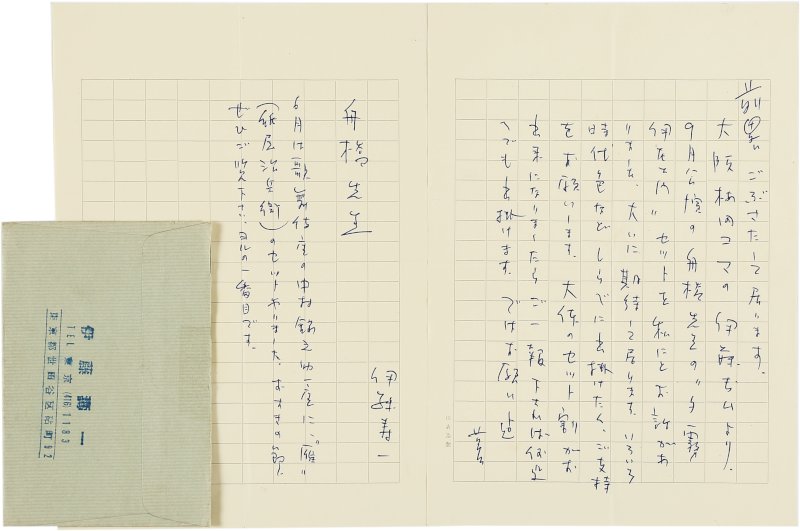 前略 ごぶさたして居ります。
大阪梅田コマの伊藤さんより、
9月公演の舟橋先生の〃夕霧
伊左ヱ門〃セットを私にとお話があ
りました。大いに期待して居ります。いろいろ
時代色などしらべに出掛けたく、ご支持
をお願いします。大体のセット割がお
出来になりましたらご一報下されば何処
へでも出掛けます。ではお願いまで
草々
伊藤寿一
舟橋先生
6月は歌舞伎座の中村錦之助一座に、〃雁〃
(紙屋治兵衛)のセットやりました。おすきの節、
ぜひご覧下さい。ヨルの一番目です。
伊藤壽一
TEL 東京 (416) 1183
東京都世田谷区